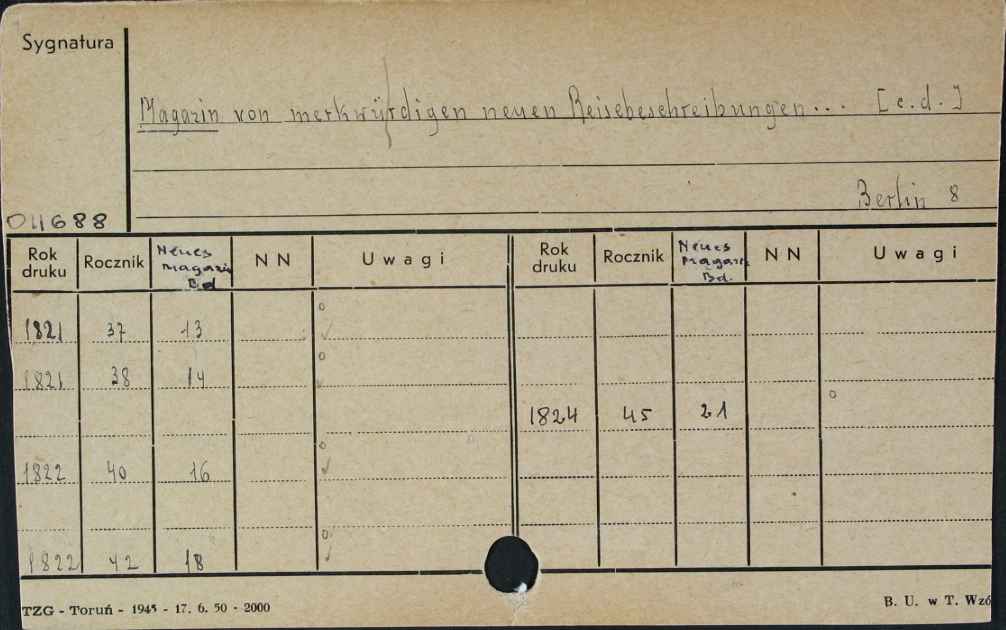 Sygnatura
Magazin von merkwürdigen neuen Reisebeschreibungen... [c.d.]
Berlin 8
011688
Rok druku Rocznik Neues Magazin Bd NN Uwagi Rok druku Rocznik Neues Magazin Bd. NN Uwagi
1821 37 13
1821 38 14
1824 45 21
1822 40 16
1822 42 18
TZG - Toruń - 1945 - 17. 6. 50 - 2000
B. U. w T. Wzó